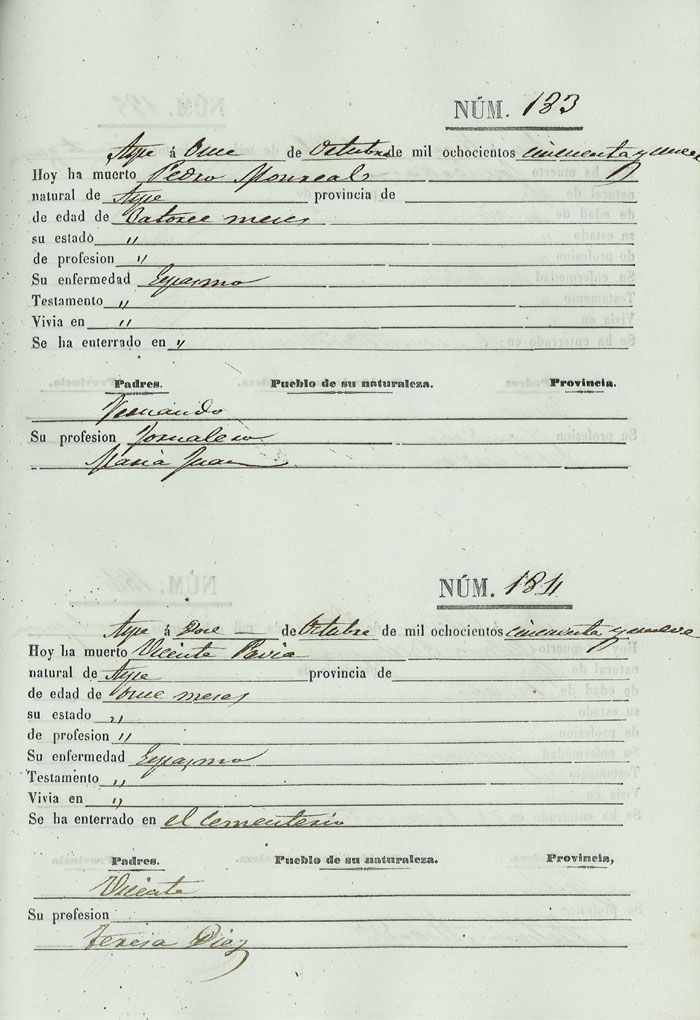 NÚM. 183
Aspe á Once de Octubre de mil ochocientos cincuenta y nueve
Hoy ha muerto Pedro Monreal
natural de Aspe provincia de
de edad de Catorce meses
su estado "
de profesion "
Su enfermedad Espasmo
Testamento "
Vivia en "
Se ha enterrado en "
Padres. Pueblo de su naturaleza. Provincia.
Fernando
Su profesion Jornalero
Maria Juan
NÚM. 184
Aspe á Doce de Octubre de mil ochocientos cincuenta y nueve
Hoy ha muerto Vicente Pavia
natural de Aspe provincia de
de edad de once meses
su estado "
de profesion "
Su enfermedad Espasmo
Testamento "
Vivia en "
Se ha enterrado en el Cementerio
Padres. Pueblo de su naturaleza. Provincia,
Vicente
Su profesion
Teresa Diez